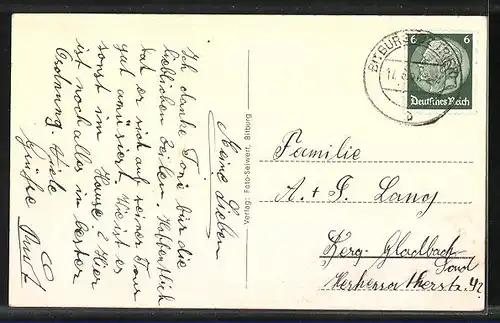 Meine Lieben
Ich danke Toni für die
lieblichen Zeilen. Hoffentlich
hat er sich auf seiner Tour
gut amüsiert. Wie ist es
sonst im Hause? Hier
ist noch alles in bester
Ordnung. Viele
Grüße
Verlag: Foto-Steinwert, Bitburg
BITBURG
6 6
Deutsches Reich
b
Familie
A. + F. Lang
Berg. Gladbach
Sand
Herkenratherstr. 42